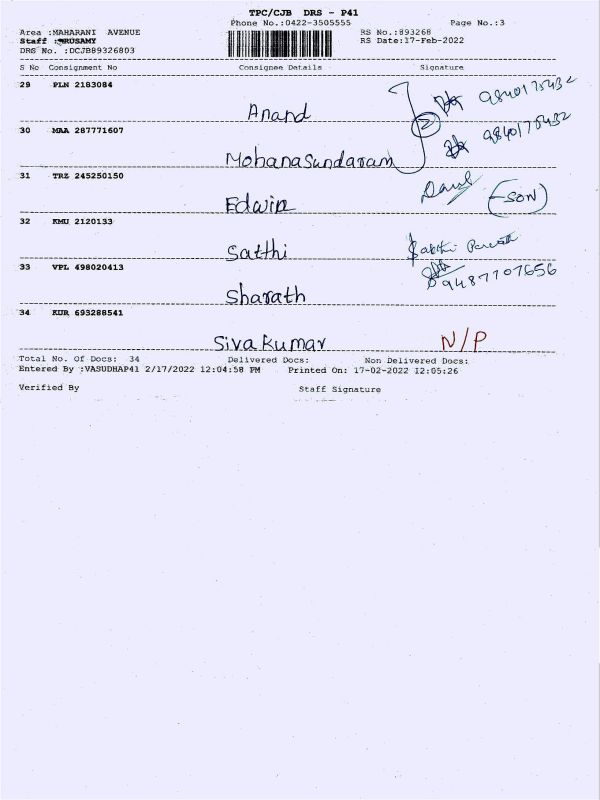 TPC/CJB DRS - P41
Phone No.:0422-3505555 Page No.:3
Area :MAHARANI AVENUE RS No.:893268
Staff : RUSAMY RS Date:17-Feb-2022
DRS No. :DCJB89326803
S No Consignment No Consignee Details Signature
29 PLN 2183084 9840175432
Anand
30 MAA 287771607 2 9840175432
Mohanasundaram
31 TRZ 245250150 (SON)
Edwin
32 KMU 2120133
Satthi Sakthi
33 VPL 498020413 9487707656
Sharath
34 KUR 693288541
Siva Kumar N/P
Total No. Of Docs: 34 Delivered Docs: Non Delivered Docs:
Entered By :VASUDHAP41 2/17/2022 12:04:58 PM Printed On: 17-02-2022 12:05:26
Verified By Staff Signature